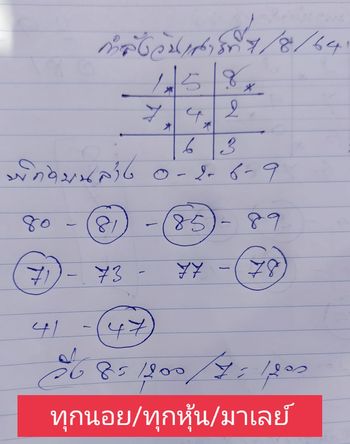 กำลังวันเสาร์ที่ 7/8/64
1 5 8
7 4 2
6 3
บนล่าง 0-2-6-9
80 - 81 - 85 - 89
71 - 73 - 77 - 78
41 - 47
วิ่ง 8 = 1,200 / 7 = 1,200
ทุกนอย/ทุกหุ้น/มาเลย์